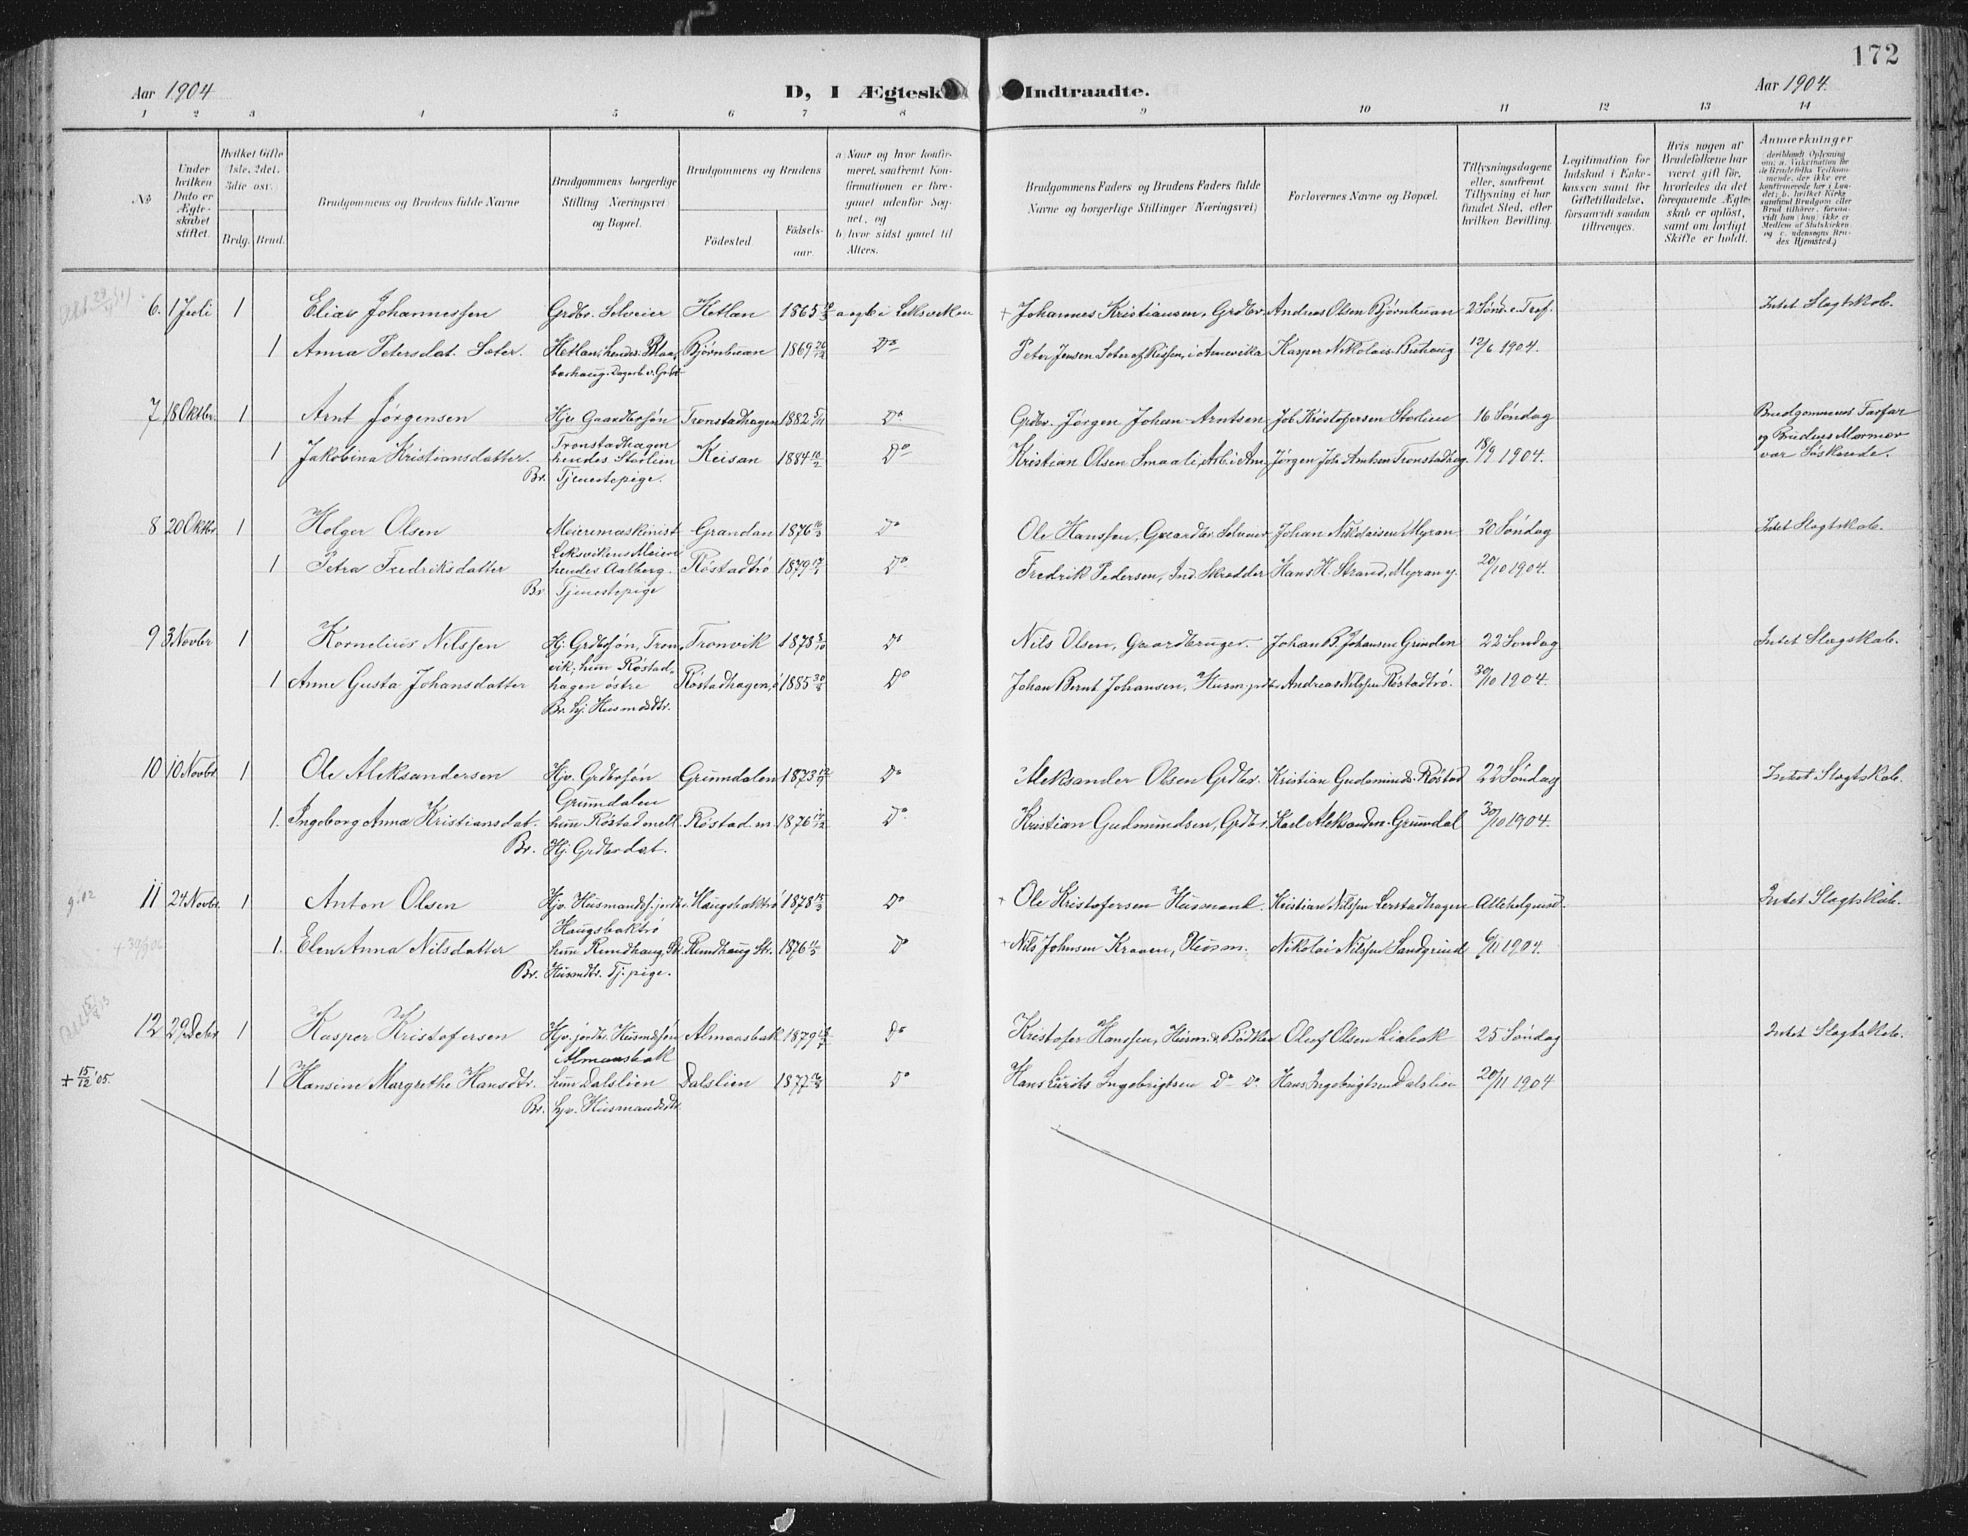 172
Aar 1904
D, I Ægtesk
Indtraadte.
Aar 1904.
1 2 3 4 5 6 7 8 9 10 11 12 13 14
No
Under hvilken Dato er Ægteskabet stiftet.
Hvilket Gifte 1ste, 2det, 3die osv.
Brdg. Brud.
Brudgommens og Brudens fulde Navne
Brudgommens borgerlige Stilling Næringsvei og Bopæl.
Brudgommens og Brudens
Födested.
Födselsaar
a Naar og hvor konfirmeret, saafremt Konfirmationen er foregaaet udenfor Sognet, og
b, hvor sidst gaaet til Alters.
Brudgommens Faders og Brudens Faders fulde Navne og borgerlige Stillinger Næringsvei)
Forlovernes Navne og Bopæl.
Tillysningsdagene eller, saafremt Tillysning ei har fundet Sted, efter hvilken Bevilling.
Legitimation for Indskud i Enkekassen samt for Giftetilladelse, forsaavidt saadan tiltrænges.
Hvis nogen af Brudefolkene har været gift för, hvorledes da det foregaaende Ægteskab er oplöst, samt om lovligt Skifte er holdt.
Anmærkninger
6. 1 Juli 1 Elias Johannessen Grdbr. Selveier Hetlan 1865 a og b i Leksviken + Johannes Kristiansen, Grdbr. Andreas Olsen Bjørnhuan 2 Sønd. e. Tref. Intet Slegtskab.
1 Anna Petersdat. Sæter. Hetlan, hendes Bjørnhuan 1869 26/12 Do Peter Jensen Sæter af Rissen, i Amerika Kasper Nikolais. 12/6 1904.
7 18 Oktbr. 1 Arnt Jørgensen Hjv. Gaardbrsøn Tronstadhagen 1882 5/11 Do Grdbr. Jørgen Johan Arntsen Joh. Kristofersen Storlien 16 Søndag Brudgommens Farfar
og Brudens Mormor
Tronstadhagen
1 Jakobina Kristiansdatter. hendes Storlien Keisan 1884 10/2 Do Kristian Olsen Smaali, Arb. i Am. Jørgen Joh. Arntsen Tronstadhag. 18/9 1904. var Søskende.
Br. Tjenestepige.
8 20 Oktbr. 1 Holger Olsen Meiermaskinist Grandan 1876 16/3 Do Ole Hanssen, Gaardbr. Selveier Johan Nikolaisen Myran 20 Søndag Intet Slegtskab.
Leksvikens Meieri
1 Petra Fredriksdatter hendes Aalberg. Røstadtrø 1879 Do Fredrik Pedersen, Ind. Skredder Hans H. Strand, Myran y. 20/10 1904.
Br. Tjenestepige
9 3 Novbr 1 Kornelius Nilssen Hj. Grdbrsøn, Tron- Tronvik 1878 8/10 Do Nils Olsen, Gaardbruger. Johan B. Johansen Grinden 22 Søndag Intet Slegtskab.
vik, hun Røstad-
1 Anne Gusta Johansdatter hagen østre Røstadhagen, ø 1885 30/5 Do Johan Bernt Johansen, Husm. jrdbr Andreas Nilssen Røstadtrø. 30/10 1904.
Br. hj. Husmdsdtr.
10 10 Novbr. 1 Ole Aleksandersen Hjv. Grdbrsøn Grunndalen 1873 Do Aleksander Olsen Grdbr. Kristian Gudmunds. Røstad 22 Søndag Intet Slegtskab.
Grunndalen
1. Ingeborg Anna Kristiansdat. hun Røstad mell. Røstad. m. 1876 Do Kristian Gudmundsen, Grdbr. Karl Aleksanders. Grunndal 30/10 1904.
Br. Hj. Grdbrdat.
11 24 Novbr. 1 Anton Olsen Hjv. Husmandss. jordbr. Haugsbaktrø 1878 15/3 Do + Ole Kristofersen Husmand. Kristian Nilssen Lerstadhagen Allehelgensd. Intet Slegtskab.
Haugsbaktrø
1. Elen Anna Nilsdatter hun Rundhaug, Str. Rundhaug Str. 1876 Do + Nils Johnsen Kraaen, Husm. Nikolai Nilssen Sandgrind 6/11 1904.
Br. Husmdtr. Tj. pige.
12 29 Debr 1 Kasper Kristofersen Hjv. jordbr. Husmdsøn Almaasbak 1879 Do Kristofer Hanssen, Husm. & Bødker Oluf Olsen Liabak 25 Søndag Intet Slegtskab.
Almaasbak
+ 15/12 '05. 1 Hansine Margrethe Hansdtr. hun Dalslien Dalslien 1877 Do Hans Lurits Ingebrigtsen Do Do Hans Ingebrigtsen Dalslien 20/11 1904
Br. hjv. Husmandsdtr.